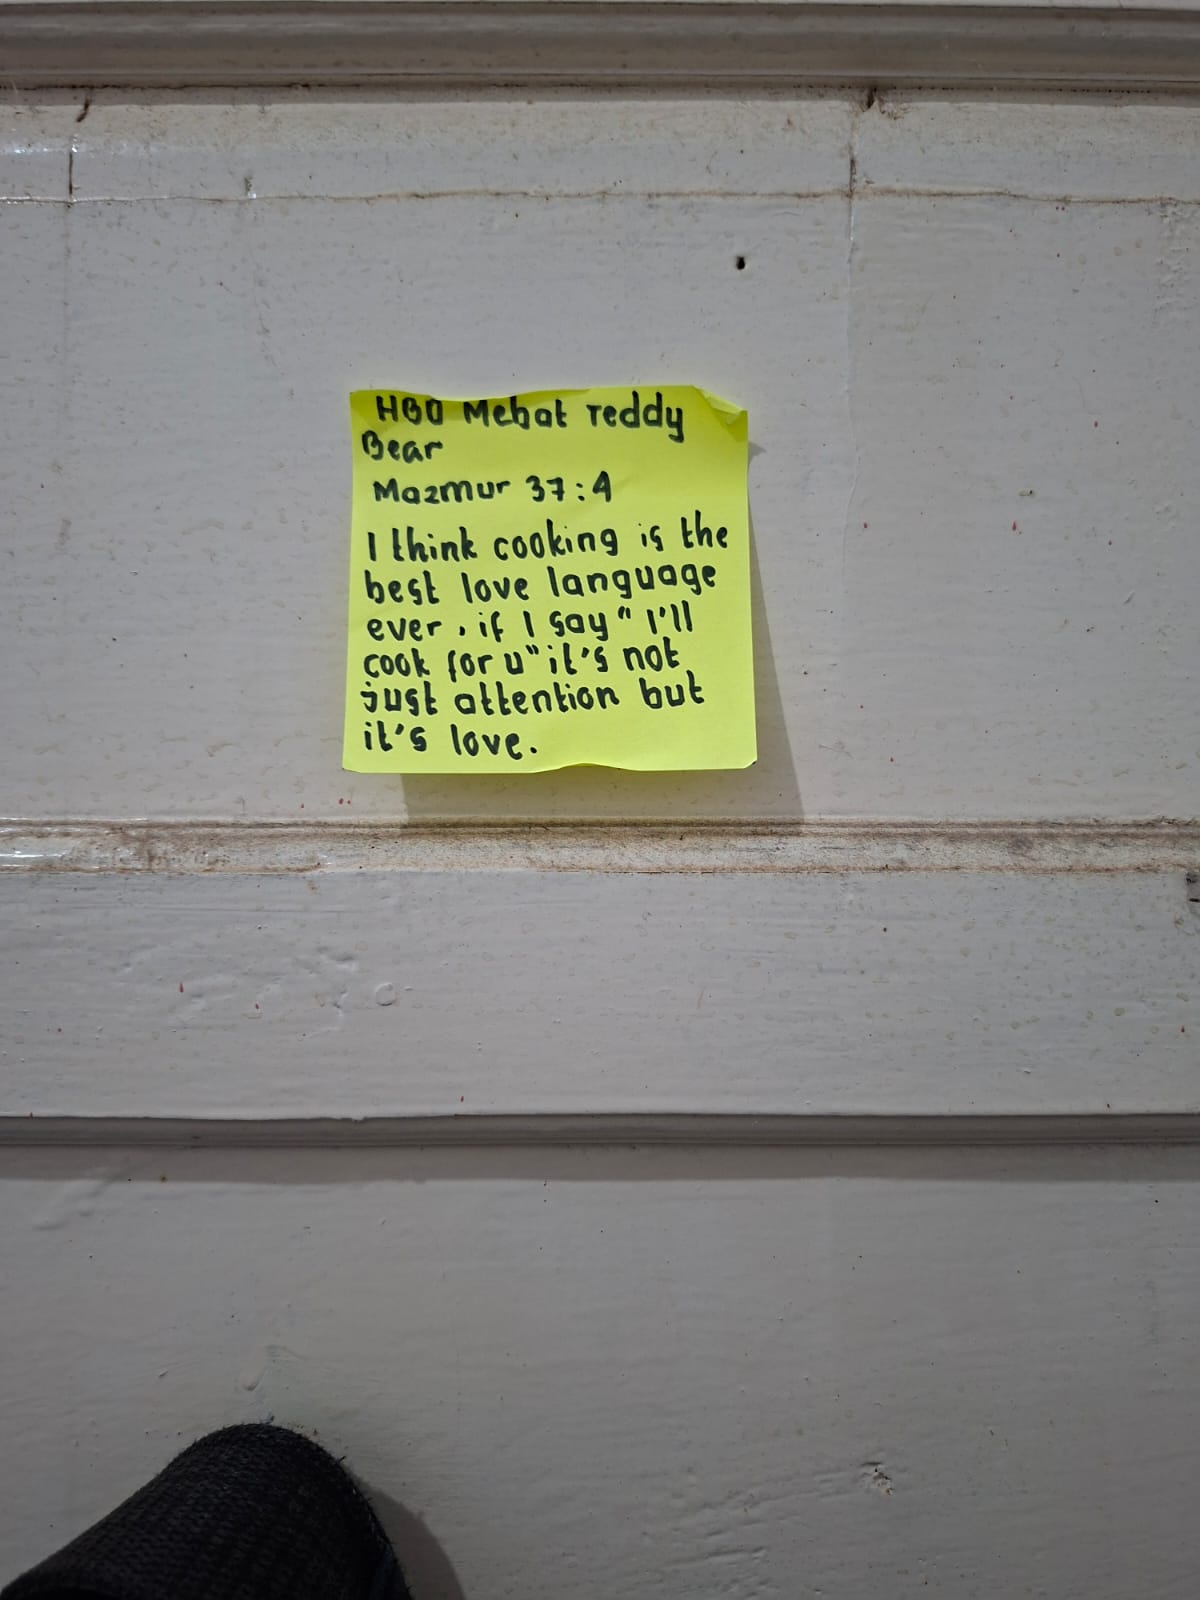 HBD Mebat Teddy
Bear
Mazmur 37:4
I think cooking is the
best love language
ever, if I say " I'll
cook for u" it's not
just attention but
it's love.